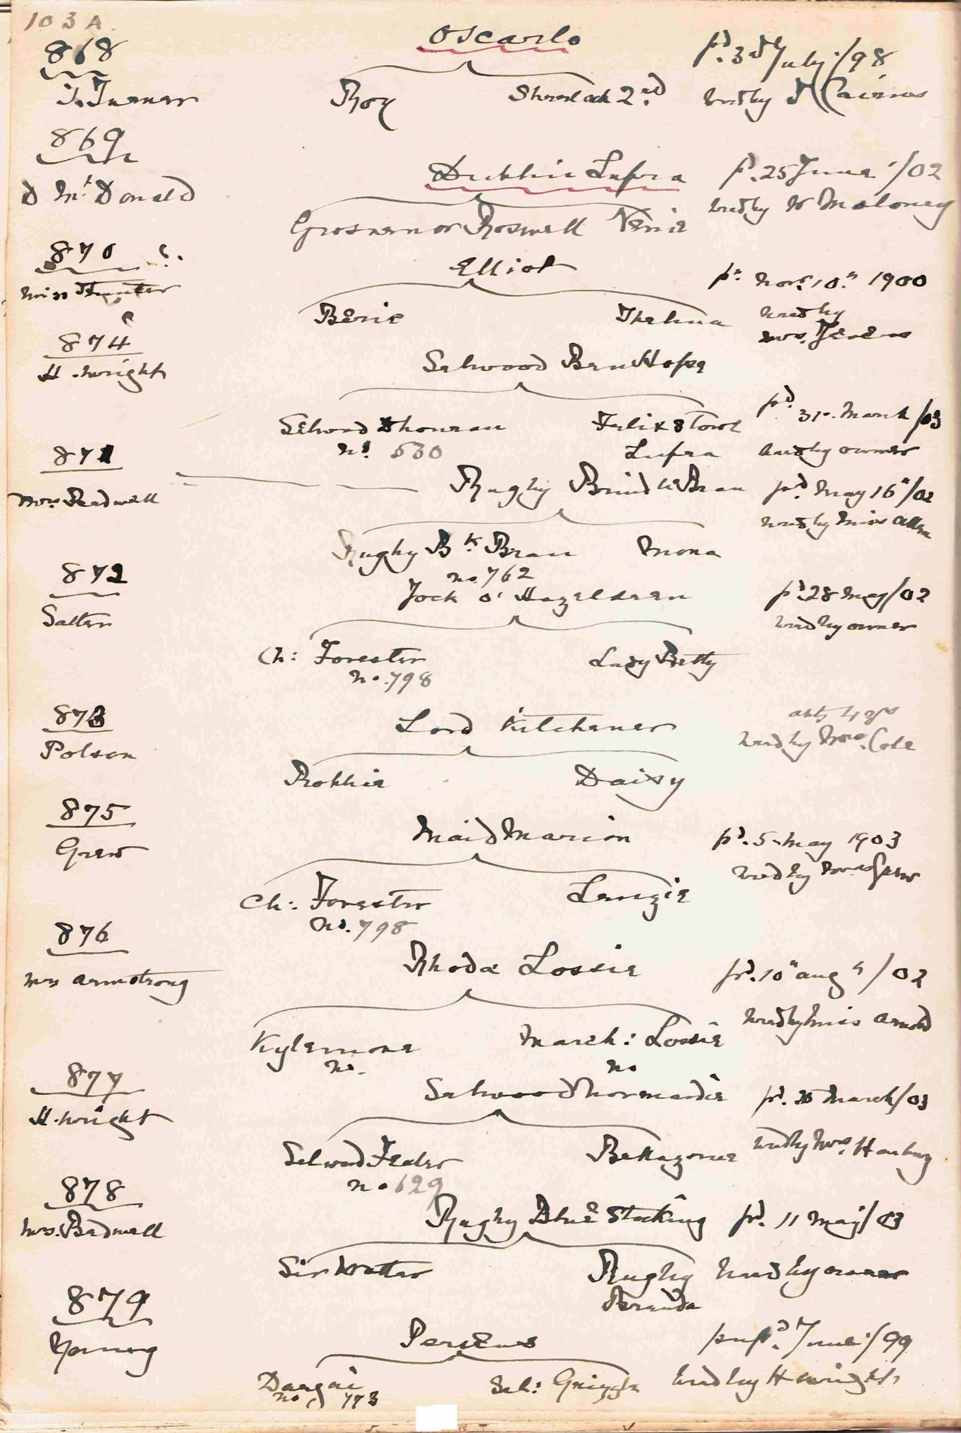 103A
868 Oscarlo pd. 3rd July /98
Roy Sherlock 2nd bred by J Cairns
869
D McDonald Dubhie Lufra p. 25 June /02
Grosvenor Roswell Venie bred by W Maloney
870 ?. Elliot pd. Nov. 10th 1900
Miss Hunter bred by
Bernie Thelma Mrs.
874
H. Wright Selwood Ben Hope
pd. 31st March /03
Selwood Dhouran Felixstowe
No 530 Lufra bred by owner
871
Mrs. Bradwell Rugby Brindle Bran pd. May 16th /02
bred by Miss Allen
Rugby Bk Bran Mona
no 762
872 Jock O' Hazeldean pd. 28 May /02
Salter bred by owner
Ch: Forester Lady Betty
No. 798
873 Lord Kitchener
Polson bred by Mrs. Cole
Robbie Daisy
875
Grew Maid Marion pd. 5. May 1903
bred by Mrs Grew
Ch: Forester Lenzie
No. 798
876
Mrs Armstrong Rhoda Lossie pd. 10th Augt /02
bred by Miss Arnold
Kylemore March: Lossie
No. No
877 Selwood Normandie pd. March /03
H. Wright bred by Mrs.
Selwood
no 629
878
Mrs. Bradwell Rugby Blue Stocking pd. 11 May /03
Sir Walter Rugby bred by owner
879
Young Perseus pup pd. June /99
Dargai Sel: Grizzle bred by H Wright
No. 773